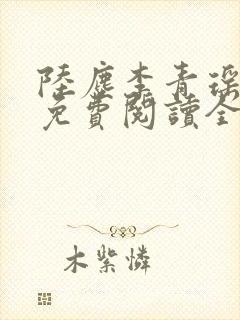 陸塵李青瑶
免費閱讀全
木紫憐